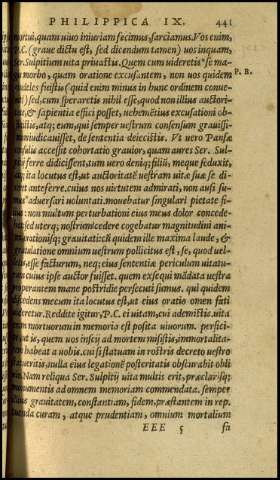 PHILIPPICA IX. 441
mortui, quam uiuo iniuriam fecimus, sarciamus. Vos enim,
P.C. (graue dictu est, sed dicendum tamen) uos inquam,
Ser. Sulpitium uita priuastis. Quem cum uideretis re ma-
morbo, quam oratione excusantem, non uos quidem
P. R.
crudeles fuistis (quid enim minus in hunc ordinem conue-
nit) sed, cum speraretis nihil esse, quod non illius auctori-
& sapientia effici posset, uehemētius excusationi ob-
atq; eum, qui semper uestrum consensum grauissi-
iudicauisset, de sententia deiecistis. Vt uero Pansæ
accessit cohortatio grauior, quam aures Ser. Sul-
ferre didicissent, tum uero deniq; filiū, meque seduxit,
ita locutus est, ut auctoritatē uestram uitæ suæ se di-
ceret anteferre. cuius nos uirtutem admirati, non ausi su-
aduersari uoluntati. mouebatur singulari pietate fi-
non multum perturbationi eius meus dolor concede-
sed uterq; nostrūm cedere cogebatur magnitudini ani-
orationisq; grauitati. cū quidem ille maxima laude, &
gratulatione omnium uestrum pollicitus est, se, quod uel-
esse facturum, neq; eius sententiæ periculum uitatu-
cuius ipse auctor fuisset. quem exsequi mādata uestra
properantem mane postridie persecuti sumus. qui quidem
discedens mecum ita locutus est, ut eius oratio omen fati
uideretur. Reddite igitur, P. C. ei uitam, cui ademistis. uita
enim mortuorum in memoria est posita uiuorum. perfici-
ut is, quem uos inscij ad mortem misistis, immortalita-
habeat a uobis. cui si statuam in rostris decreto uestro
statueritis, nulla eius legationē posteritatis obscurabit obli-
Nam reliqua Ser. Sulpitij uita multis erit, præclarisq;
monumentis ad omnem memoriam commendata. semper
illius grauitatem, constantiam, fidem, præstantem in rep.
tuenda curam, atque prudentiam, omnium mortalium
EEE 5 fa